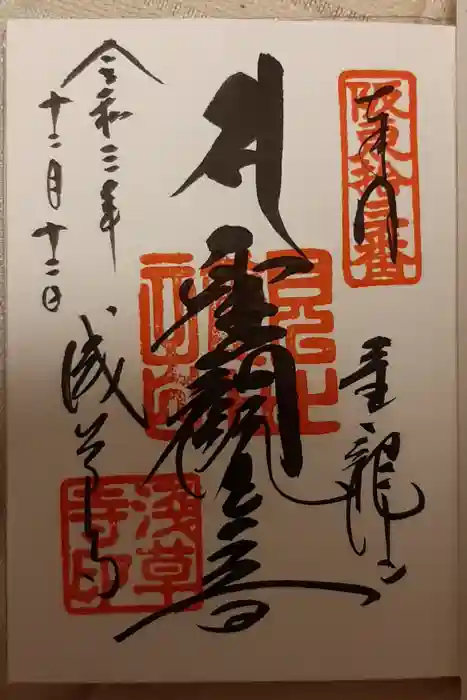 奉拝
阪東拾三番
金龍山
聖観世音
浅草寺
淺草寺印
令和三年
十二月十二日